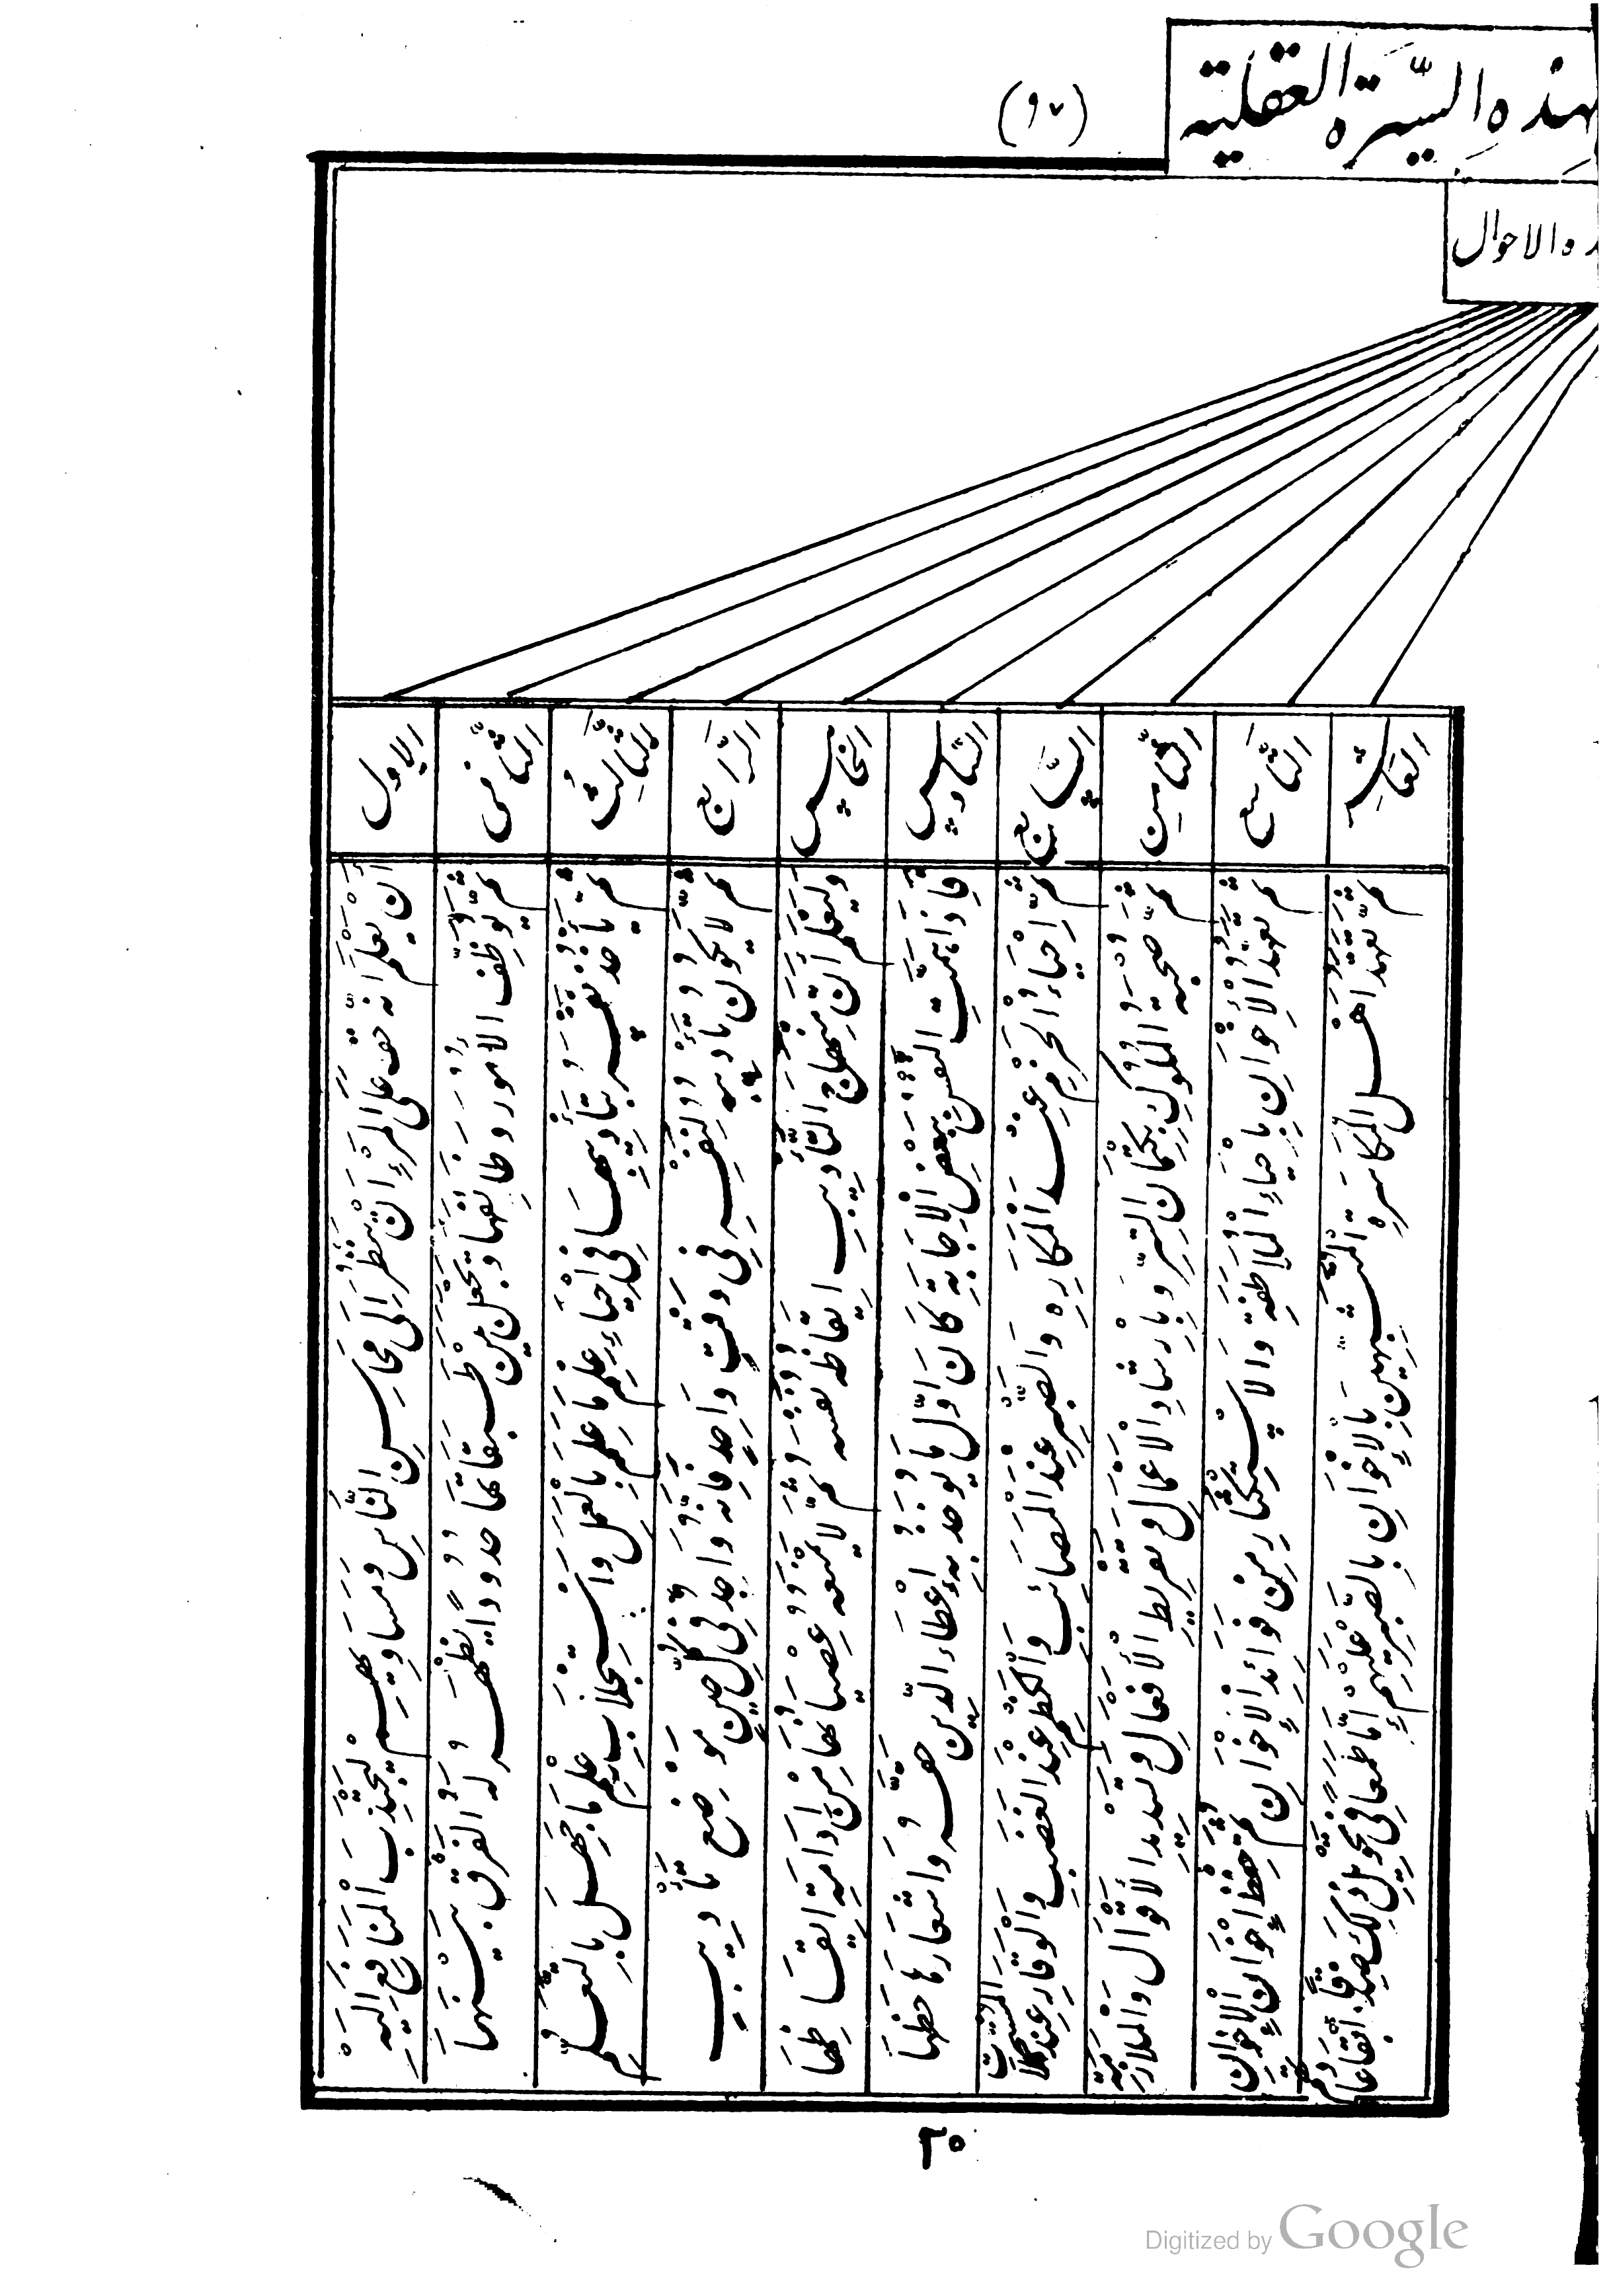 (٩٧)
بهذه السيرة العقلية
ده الاحوال
الاول
أن يعلم انه حق على المرء ان ينظر الى محاسن الناس ومساويهم ليجتذب المنافع اليه
الثاني
ثم يوظف الامور وظائفها وتجعل بين طبقاتها حدودا يظهر له الفرق بينها
الثالث
ثم يأخذ نفسه بتأديبها في احياء علم ما علم بالعمل واستجلاب علم ما جهل بالتعلم
الرابع
ثم لا يكون تأديبه لنفسه في وقت واحد فانه واجد في كل حين موضع تأديب
الخامس
وليعلم أن منهاج التأديب ايقاظ نفسه ثم لا يمنعه عصيانها من ادامة ايقاظها
السادس
فاذا همت النفس ببعض الاجابة كان اول ما يوخذ به اعطاء الدين حقه واشعارها حظها
السابع
ثم احياء الحزم عند المكاره والصبر عند المصائب والكظم عند الغضب والوقار عند المستجهلات
الثامن
ثم صحبة الملوك بكتمان السر وبارشاد الاعمال وتقريظ الافعال وتسديد الاقوال والملازمة
التاسع
ثم تعهد الأخوان باحياء الملاطفة والاستكثار من فوائد الاخوان ثم حفظ اخوان الاخوان
العاشر
ثم تعهد اهل المكاشرة المتشبهين بالاخوان بالصبر عليهم اما طمعا في تحويل ذلك صدقا
٦٥
Digitized by Google